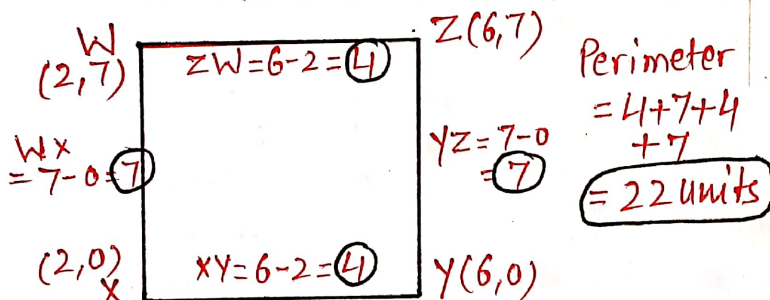 W
(2,7)
ZW=6-2=4
Z(6,7)
WX
=7-0=7
YZ=7-0
=7
(2,0)
X
XY=6-2=4
Y(6,0)
Perimeter
=4+7+4
+7
=22 units